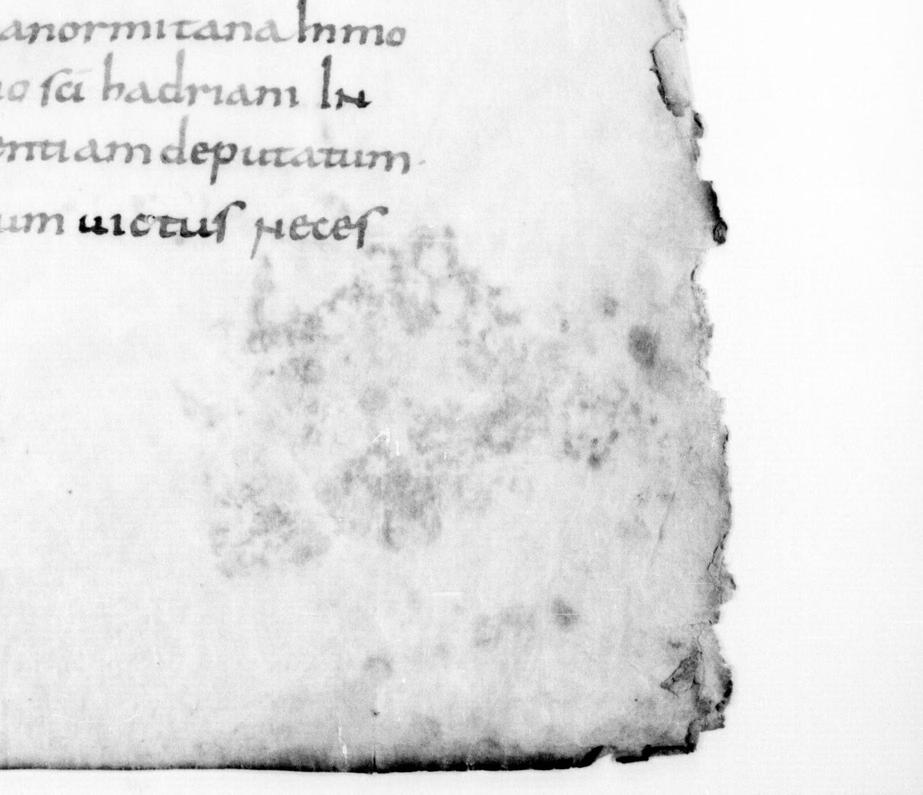 anormitana Inmo
o sci hadriani IN
entiam deputatum.
um uictus neces